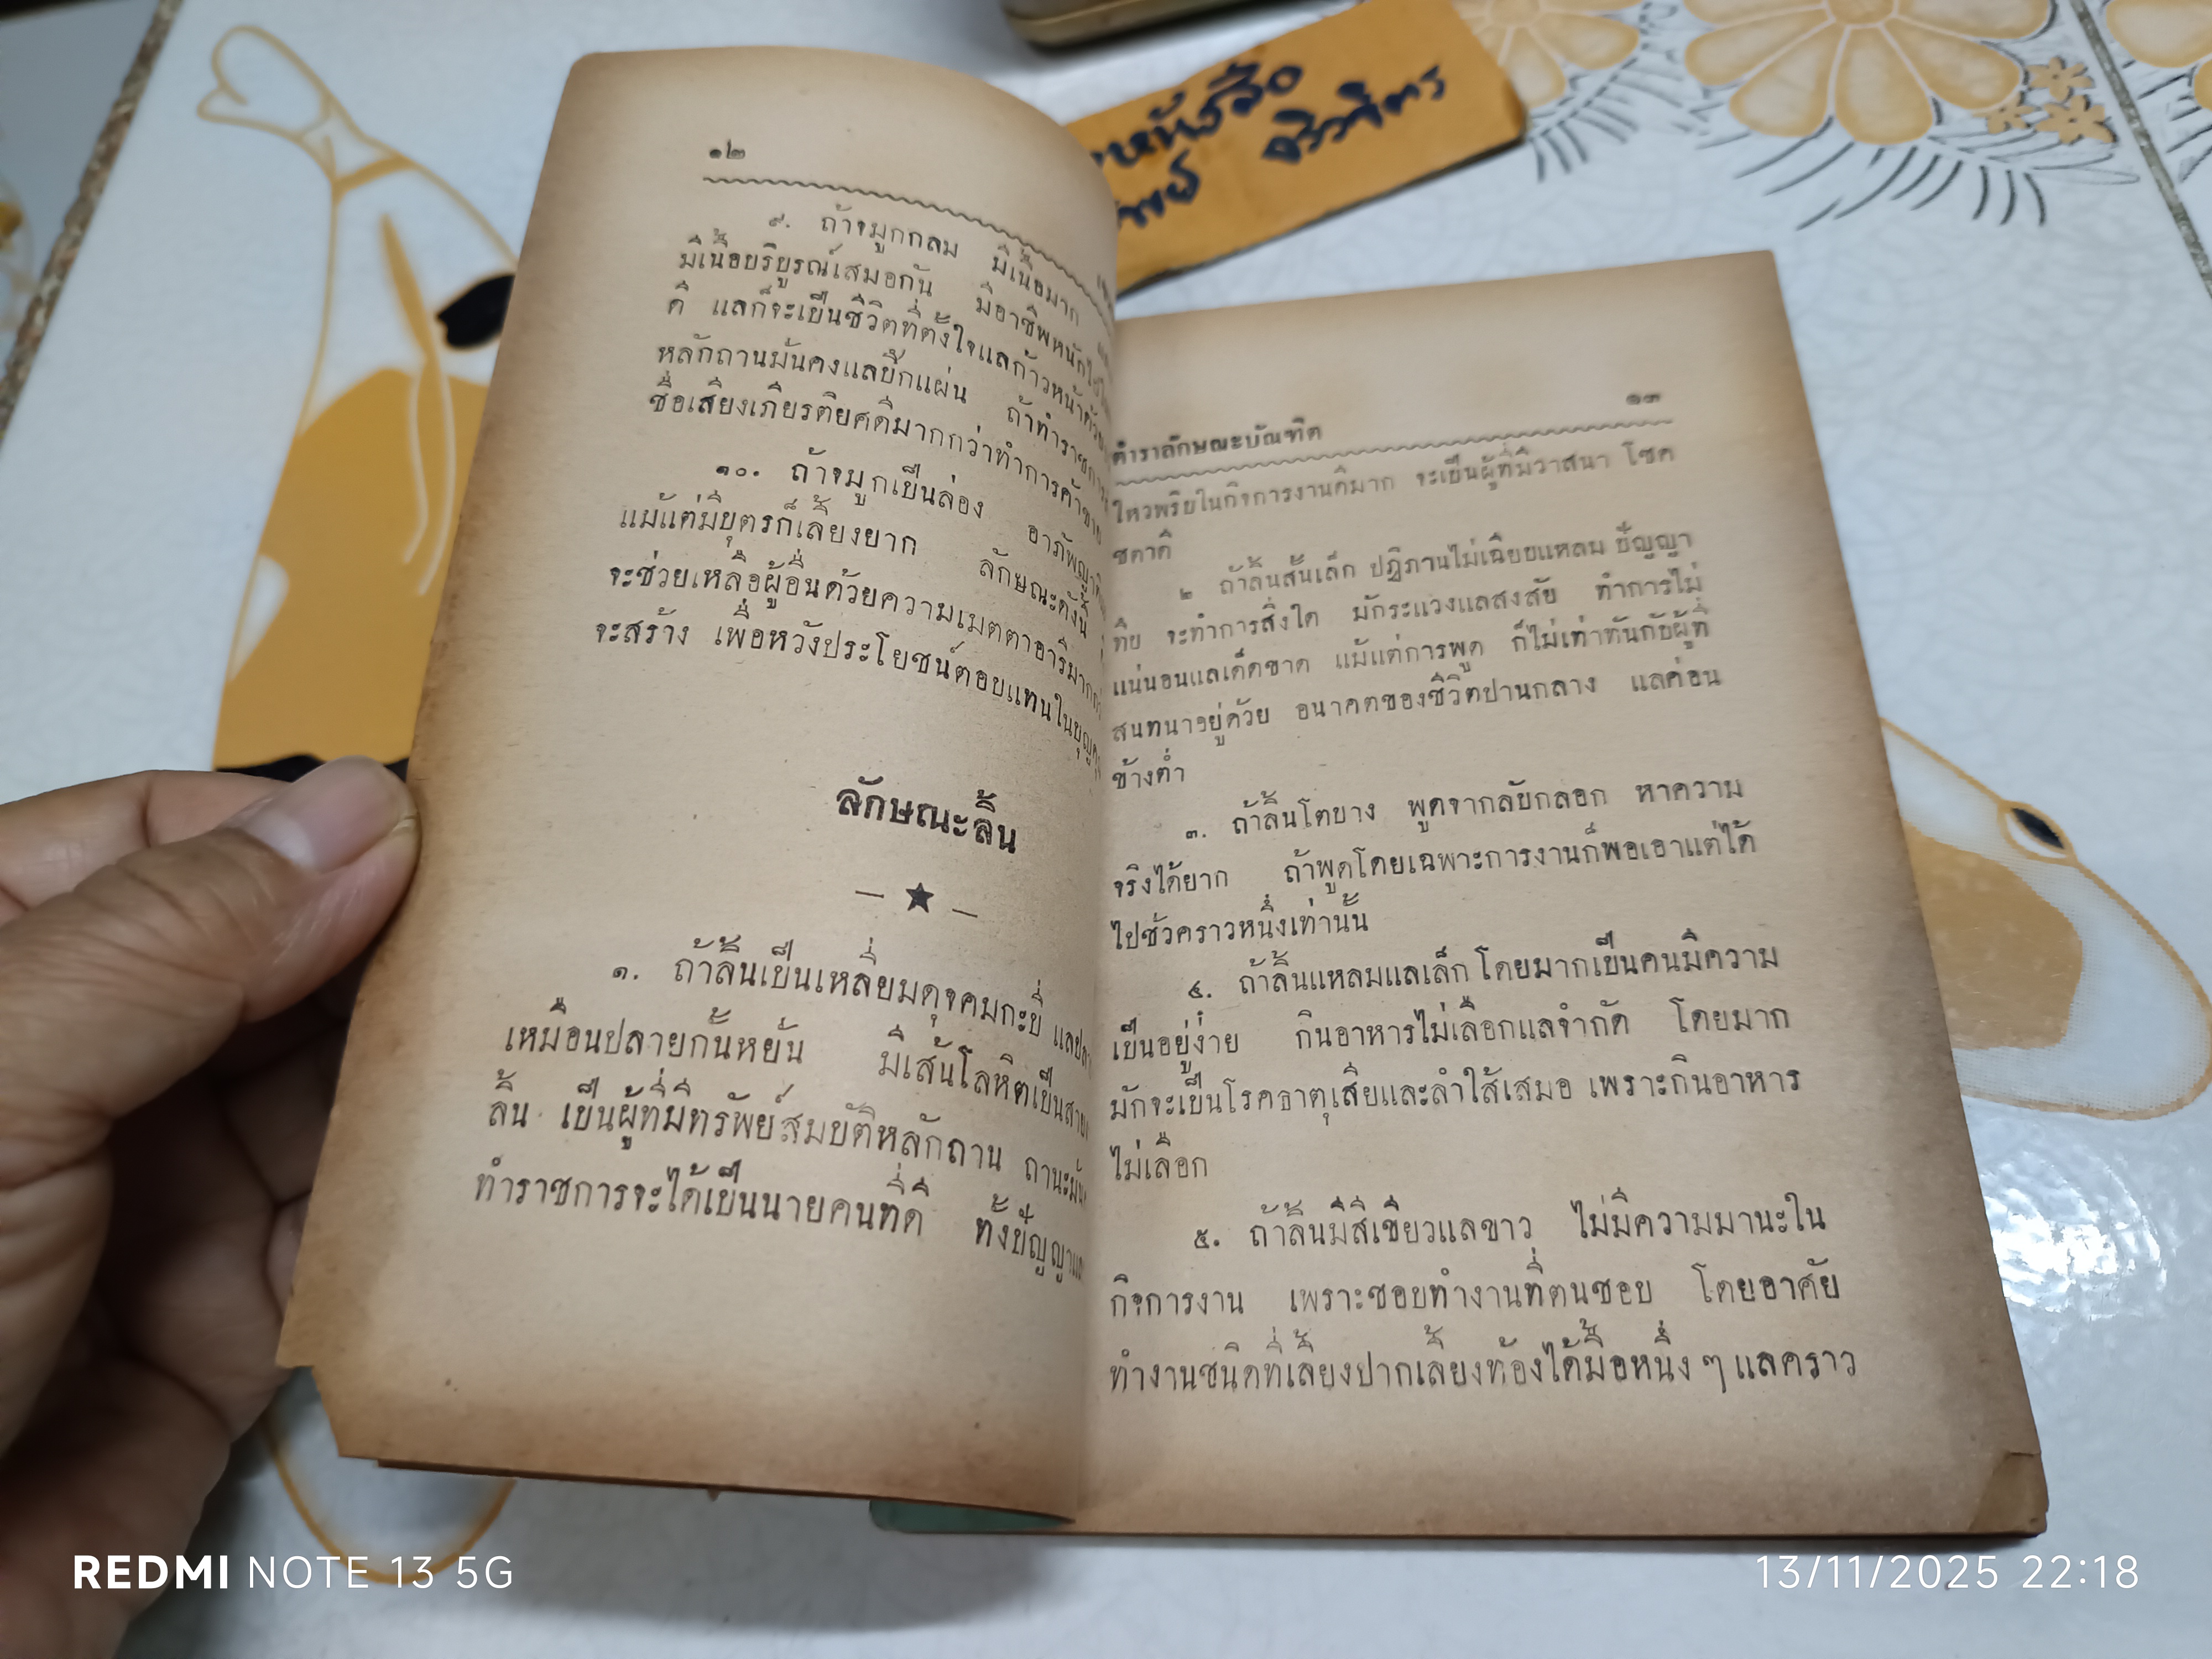 ๑๒
๙. ถ้าจมูกกลม มีเนื้อมาก
มีเนื้อบริบูรณ์เสมอกัน มีอาชีพหนักไป
ดี แลก็จะเป็นชีวิตที่ตั้งใจแลก้าวหน้าด้วย
หลักถานมั่นคงแลปึกแผ่น ถ้าทำราชการ
ชื่อเสียงเกียรติยศดีมากกว่าทำการค้าขาย
๑๐. ถ้าจมูกเป็นล่อง อาภัพญาติ
แม้แต่มีบุตรก็เลี้ยงยาก ลักษณะดังนี้
จะช่วยเหลือผู้อื่นด้วยความเมตตาอารีมากกว่
จะสร้าง เพื่อหวังประโยชน์ตอบแทนในบุญคุณ
ลักษณะลิ้น
— ★ —
๑. ถ้าลิ้นเป็นเหลี่ยมดุจคมกะบี่ แลปลา
เหมือนปลายกั้นหยั่น มีเส้นโลหิตเป็นสาย
ลิ้น เป็นผู้ที่มีทรัพย์สมบัติหลักถาน ถานะมั่น
ทำราชการจะได้เป็นนายคนที่ดี ทั้งปัญญาแ
๑๓
ตำราลักษณะบัณฑิต
ไหวพริบในกิจการงานดีมาก จะเป็นผู้ที่มีวาสนา โชค
ชตาดี
๒ ถ้าลิ้นสั้นเล็ก ปฏิภานไม่เฉียบแหลม ปัญญา
ทึบ จะทำการสิ่งใด มักระแวงแลสงสัย ทำการไม่
แน่นอนแลเด็ดขาด แม้แต่การพูด ก็ไม่เท่าทันกับผู้ที่
สนทนาอยู่ด้วย อนาคตของชีวิตปานกลาง แลค่อน
ข้างต่ำ
๓. ถ้าลิ้นโตบาง พูดจากลับกลอก หาความ
จริงได้ยาก ถ้าพูดโดยเฉพาะการงานก็พอเอาแต่ได้
ไปชั่วคราวหนึ่งเท่านั้น
๔. ถ้าลิ้นแหลมแลเล็ก โดยมากเป็นคนมีความ
เป็นอยู่ง่าย กินอาหารไม่เลือกแลจำกัด โดยมาก
มักจะเป็นโรคธาตุเสียและลำใส้เสมอ เพราะกินอาหาร
ไม่เลือก
๕. ถ้าลิ้นมีสีเขียวแลขาว ไม่มีความมานะใน
กิจการงาน เพราะชอบทำงานที่ตนชอบ โดยอาศัย
ทำงานชนิดที่เลี้ยงปากเลี้ยงท้องได้มื้อหนึ่ง ๆ แลคราว
REDMI NOTE 13 5G
13/11/2025 22:18